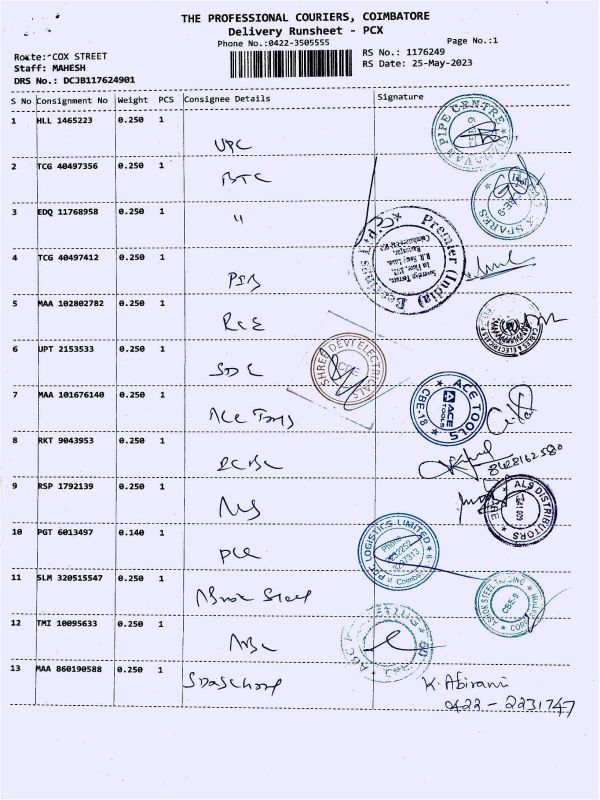 THE PROFESSIONAL COURIERS, COIMBATORE
Delivery Runsheet - PCX
Phone No.:0422-3505555
Page No.:1
Route: COX STREET
RS No.: 1176249
Staff: MAHESH
RS Date: 25-May-2023
DRS No.: DCJB117624901
S No Consignment No Weight PCS Consignee Details Signature
1 HLL 1465223 0.250 1
UPC
PIPE CENTRE
2 TCG 40497356 0.250 1
BTC
& SPARES
3 EDQ 11768958 0.250 1
"
Premier (India)
4 TCG 40497412 0.250 1
PIB
5 MAA 102802782 0.250 1
RCE
6 UPT 2153533 0.250 1
SDC
SHREE DEVI ELECTRICALS
CBE
7 MAA 101676140 0.250 1
ACE Tools
ACE TOOLS
ACE TOOLS
CBE-18
8 RKT 9043953 0.250 1
9 RSP 1792139 0.250 1
ALS DISTRIBUTORS
10 PGT 6013497 0.140 1
PCC LOGISTICS LIMITED
Phone
11 SLM 320515547 0.250 1
Ashok Steel
ASHOK STEEL
CBE-9
12 TMI 10095633 0.250 1
ABC
ABC
13 MAA 860190588 0.250 1
K. Abirami
0422 - 2231747